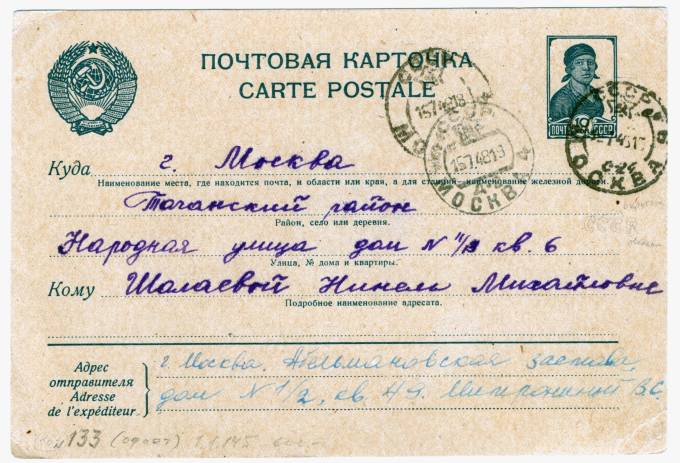 ПОЧТОВАЯ КАРТОЧКА
CARTE POSTALE
ПОЧТА СССР
МОСКВА
15 7 48 18
МОСКВА 4
15 7 48 19
СССР
МОСКВА
Куда г. Москва
Наименование места, где находится почта, и области или края, а для станций-наименование железной дороги
Таганский район
Район, село или деревня.
Народная улица дом N 11/13 кв. 6
Улица, № дома и квартиры.
Кому Шалаевой Нинель Михайловне
Подробное наименование адресата.
Адрес отправителя
Adresse de l'expéditeur
г. Москва. Абельмановская застава,
дом N 1/2, кв. 49. В.С.
133 1.1.45